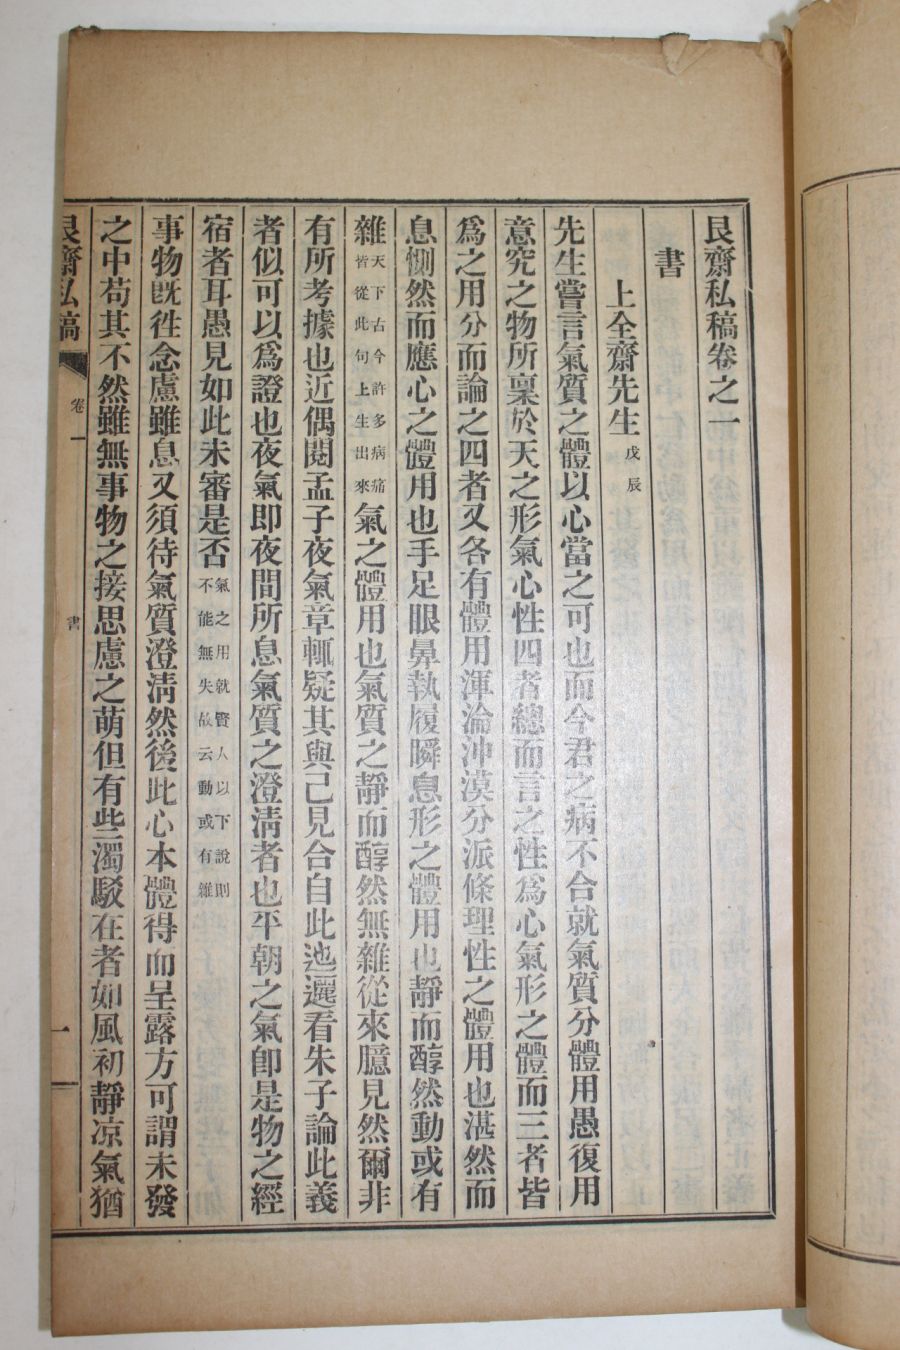 艮齋私稿卷之一
書
上全齋先生戊辰
先生嘗言氣質之體以心當之可也而今君之病不合就氣質分體用愚復用
意究之物所稟於天之形氣心性四者總而言之性爲心氣形之體而三者皆
爲之用分而論之四者又各有體用渾淪沖漠分派條理性之體用也湛然而
息惻然而應心之體用也手足眼鼻執履瞬息形之體用也靜而醇然動或有
雜天下古今許多病痛皆從此句上生出來氣之體用也氣質之靜而醇然無雜從來臆見然爾非
有所考據也近偶閱孟子夜氣章輒疑其與己見合自此迤邐看朱子論此義
者似可以爲證也夜氣卽夜間所息氣質之澄淸者也平朝之氣卽是物之經
宿者耳愚見如此未審是否氣之用就賢人以下說則不能無失故云動或有雜
事物旣徃念慮雖息又須待氣質澄淸然後此心本體得而呈露方可謂未發
之中苟其不然雖無事物之接思慮之萌但有些濁駁在者如風初靜凉氣猶
艮齋私稿
卷一
書
一